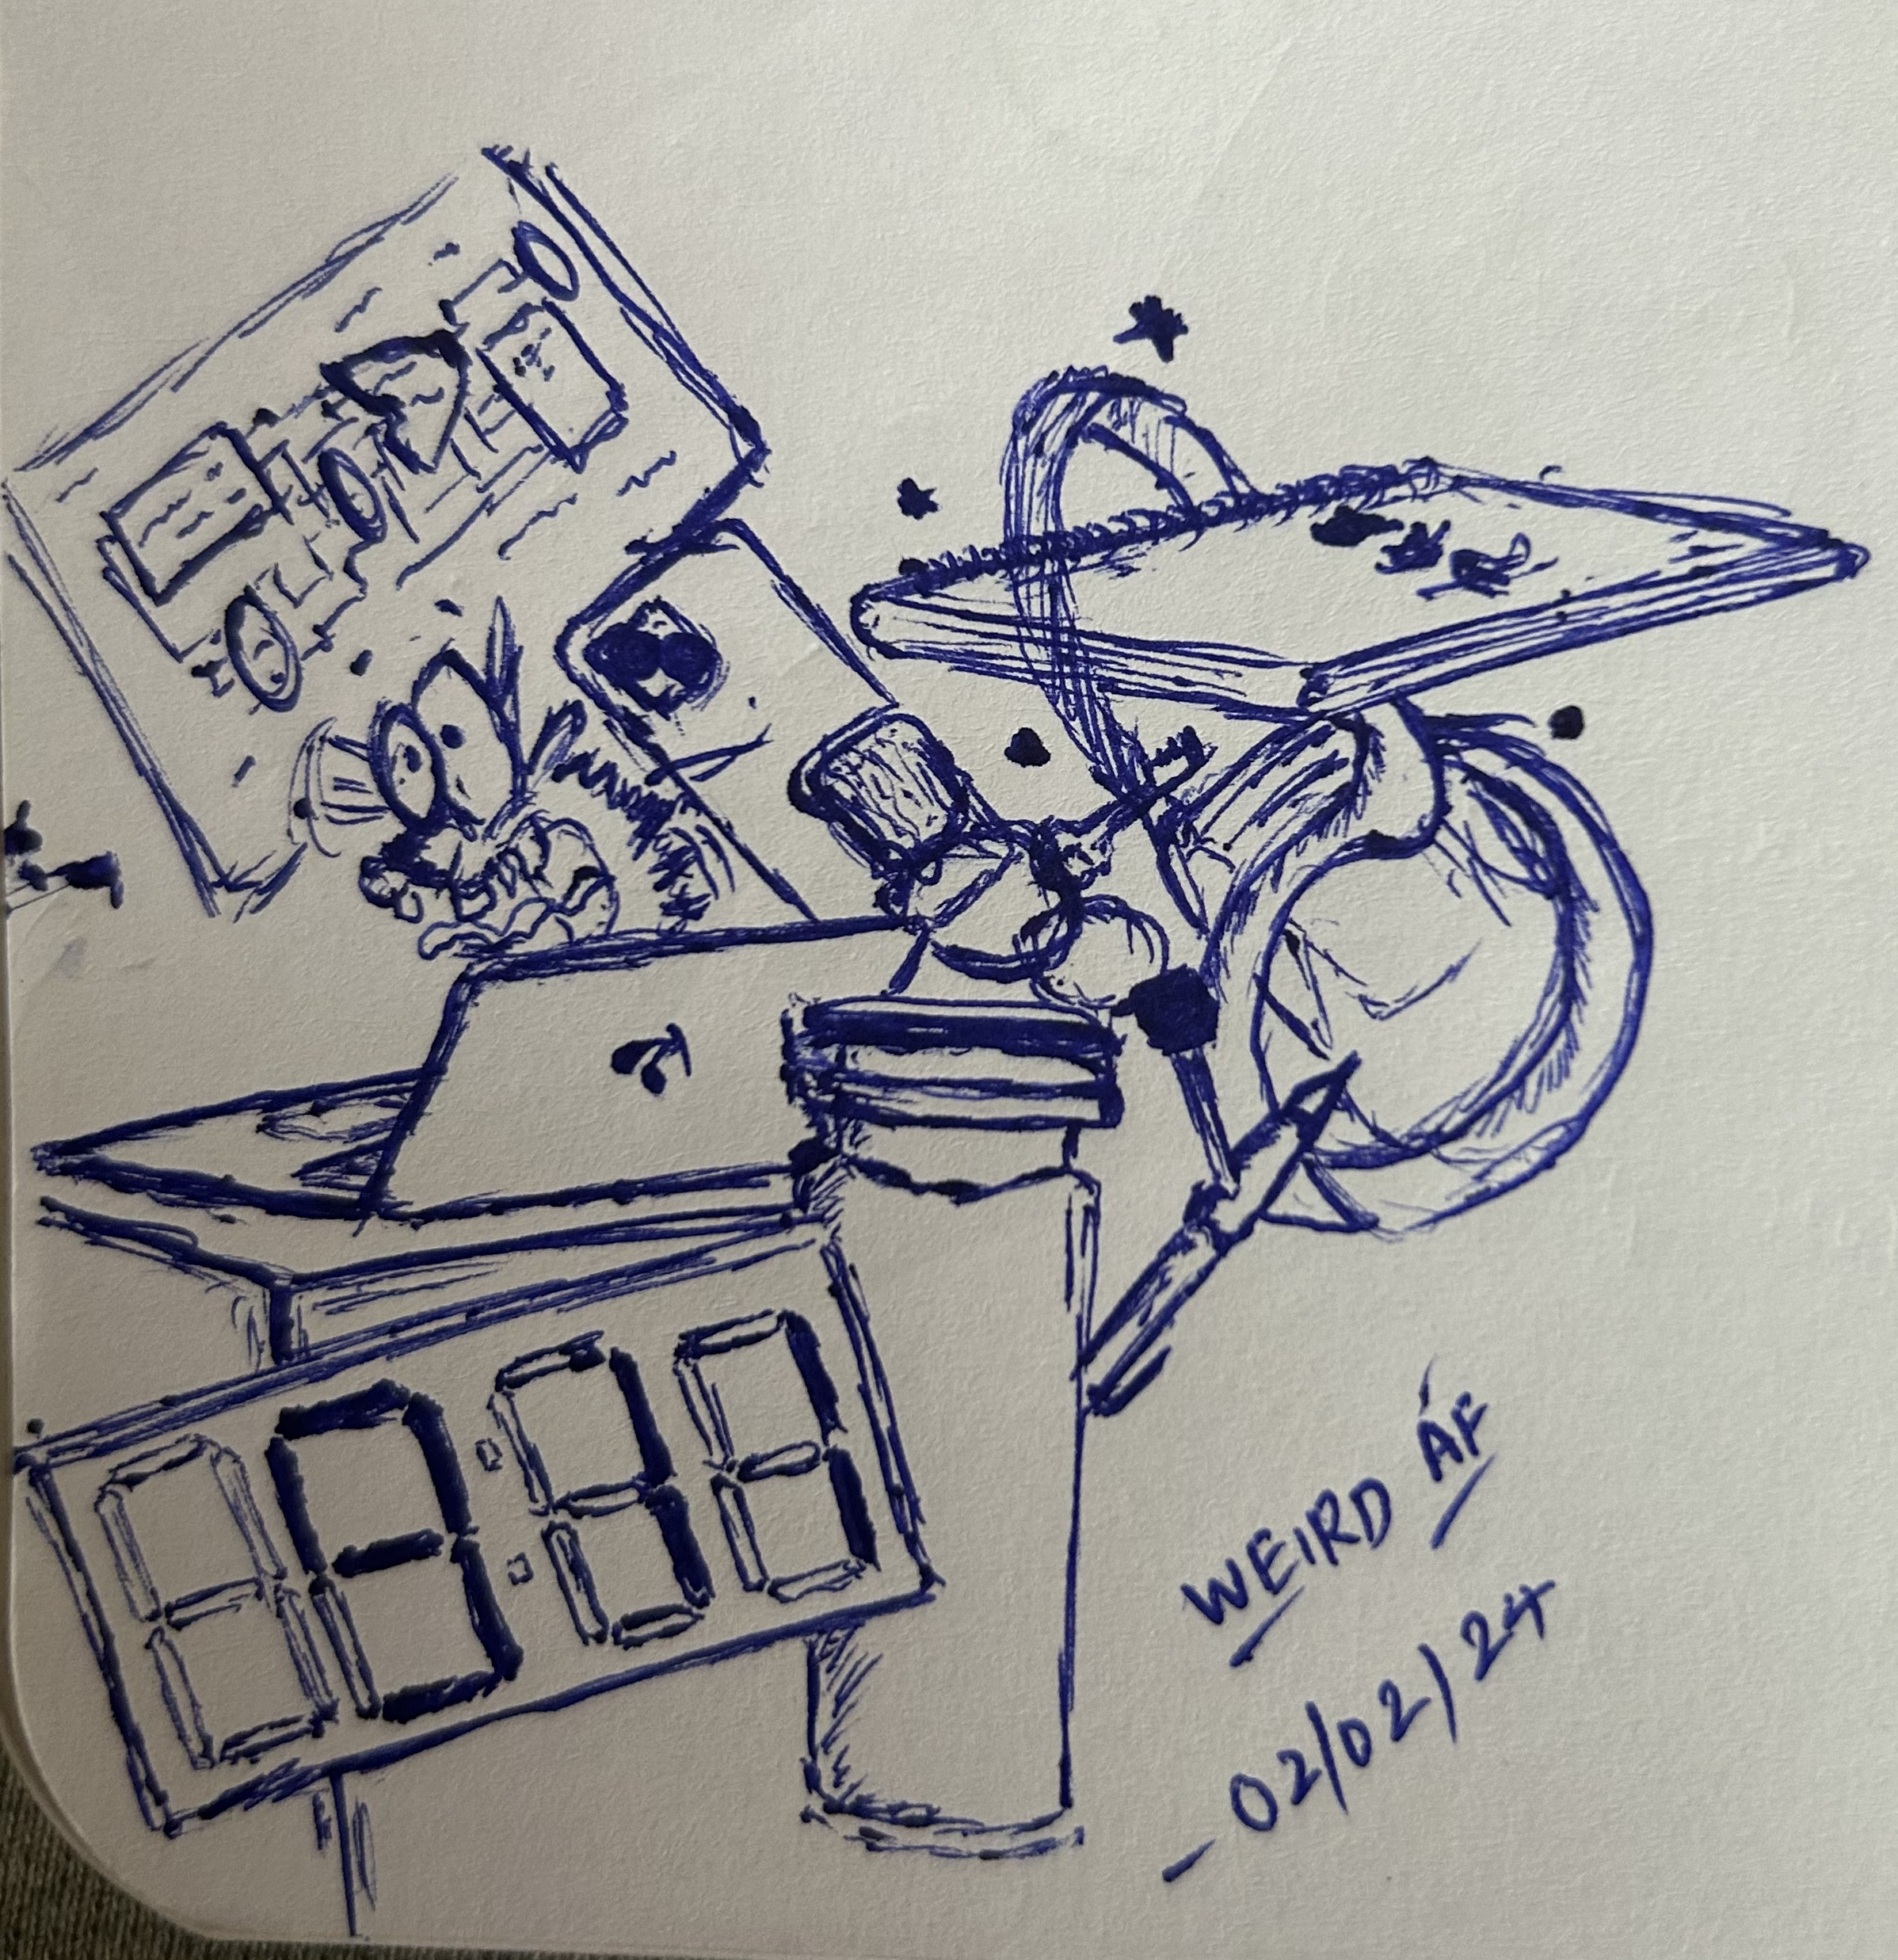 9:11
WEIRD AF
- 02/02/24